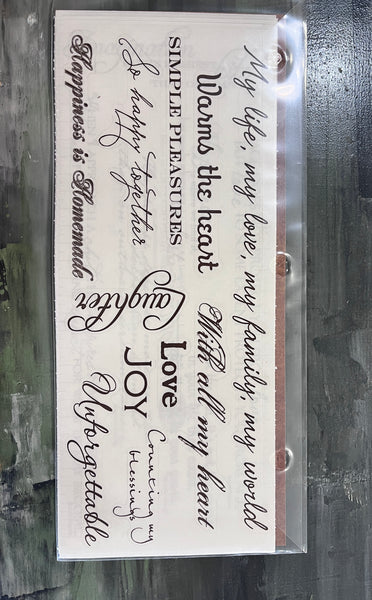 My life, my love, my family, my world
Warms the heart
With all my heart
SIMPLE PLEASURES
Love
So happy together
JOY
Counting my
blessings
Laughter
Happiness is Homemade
Unforgettable